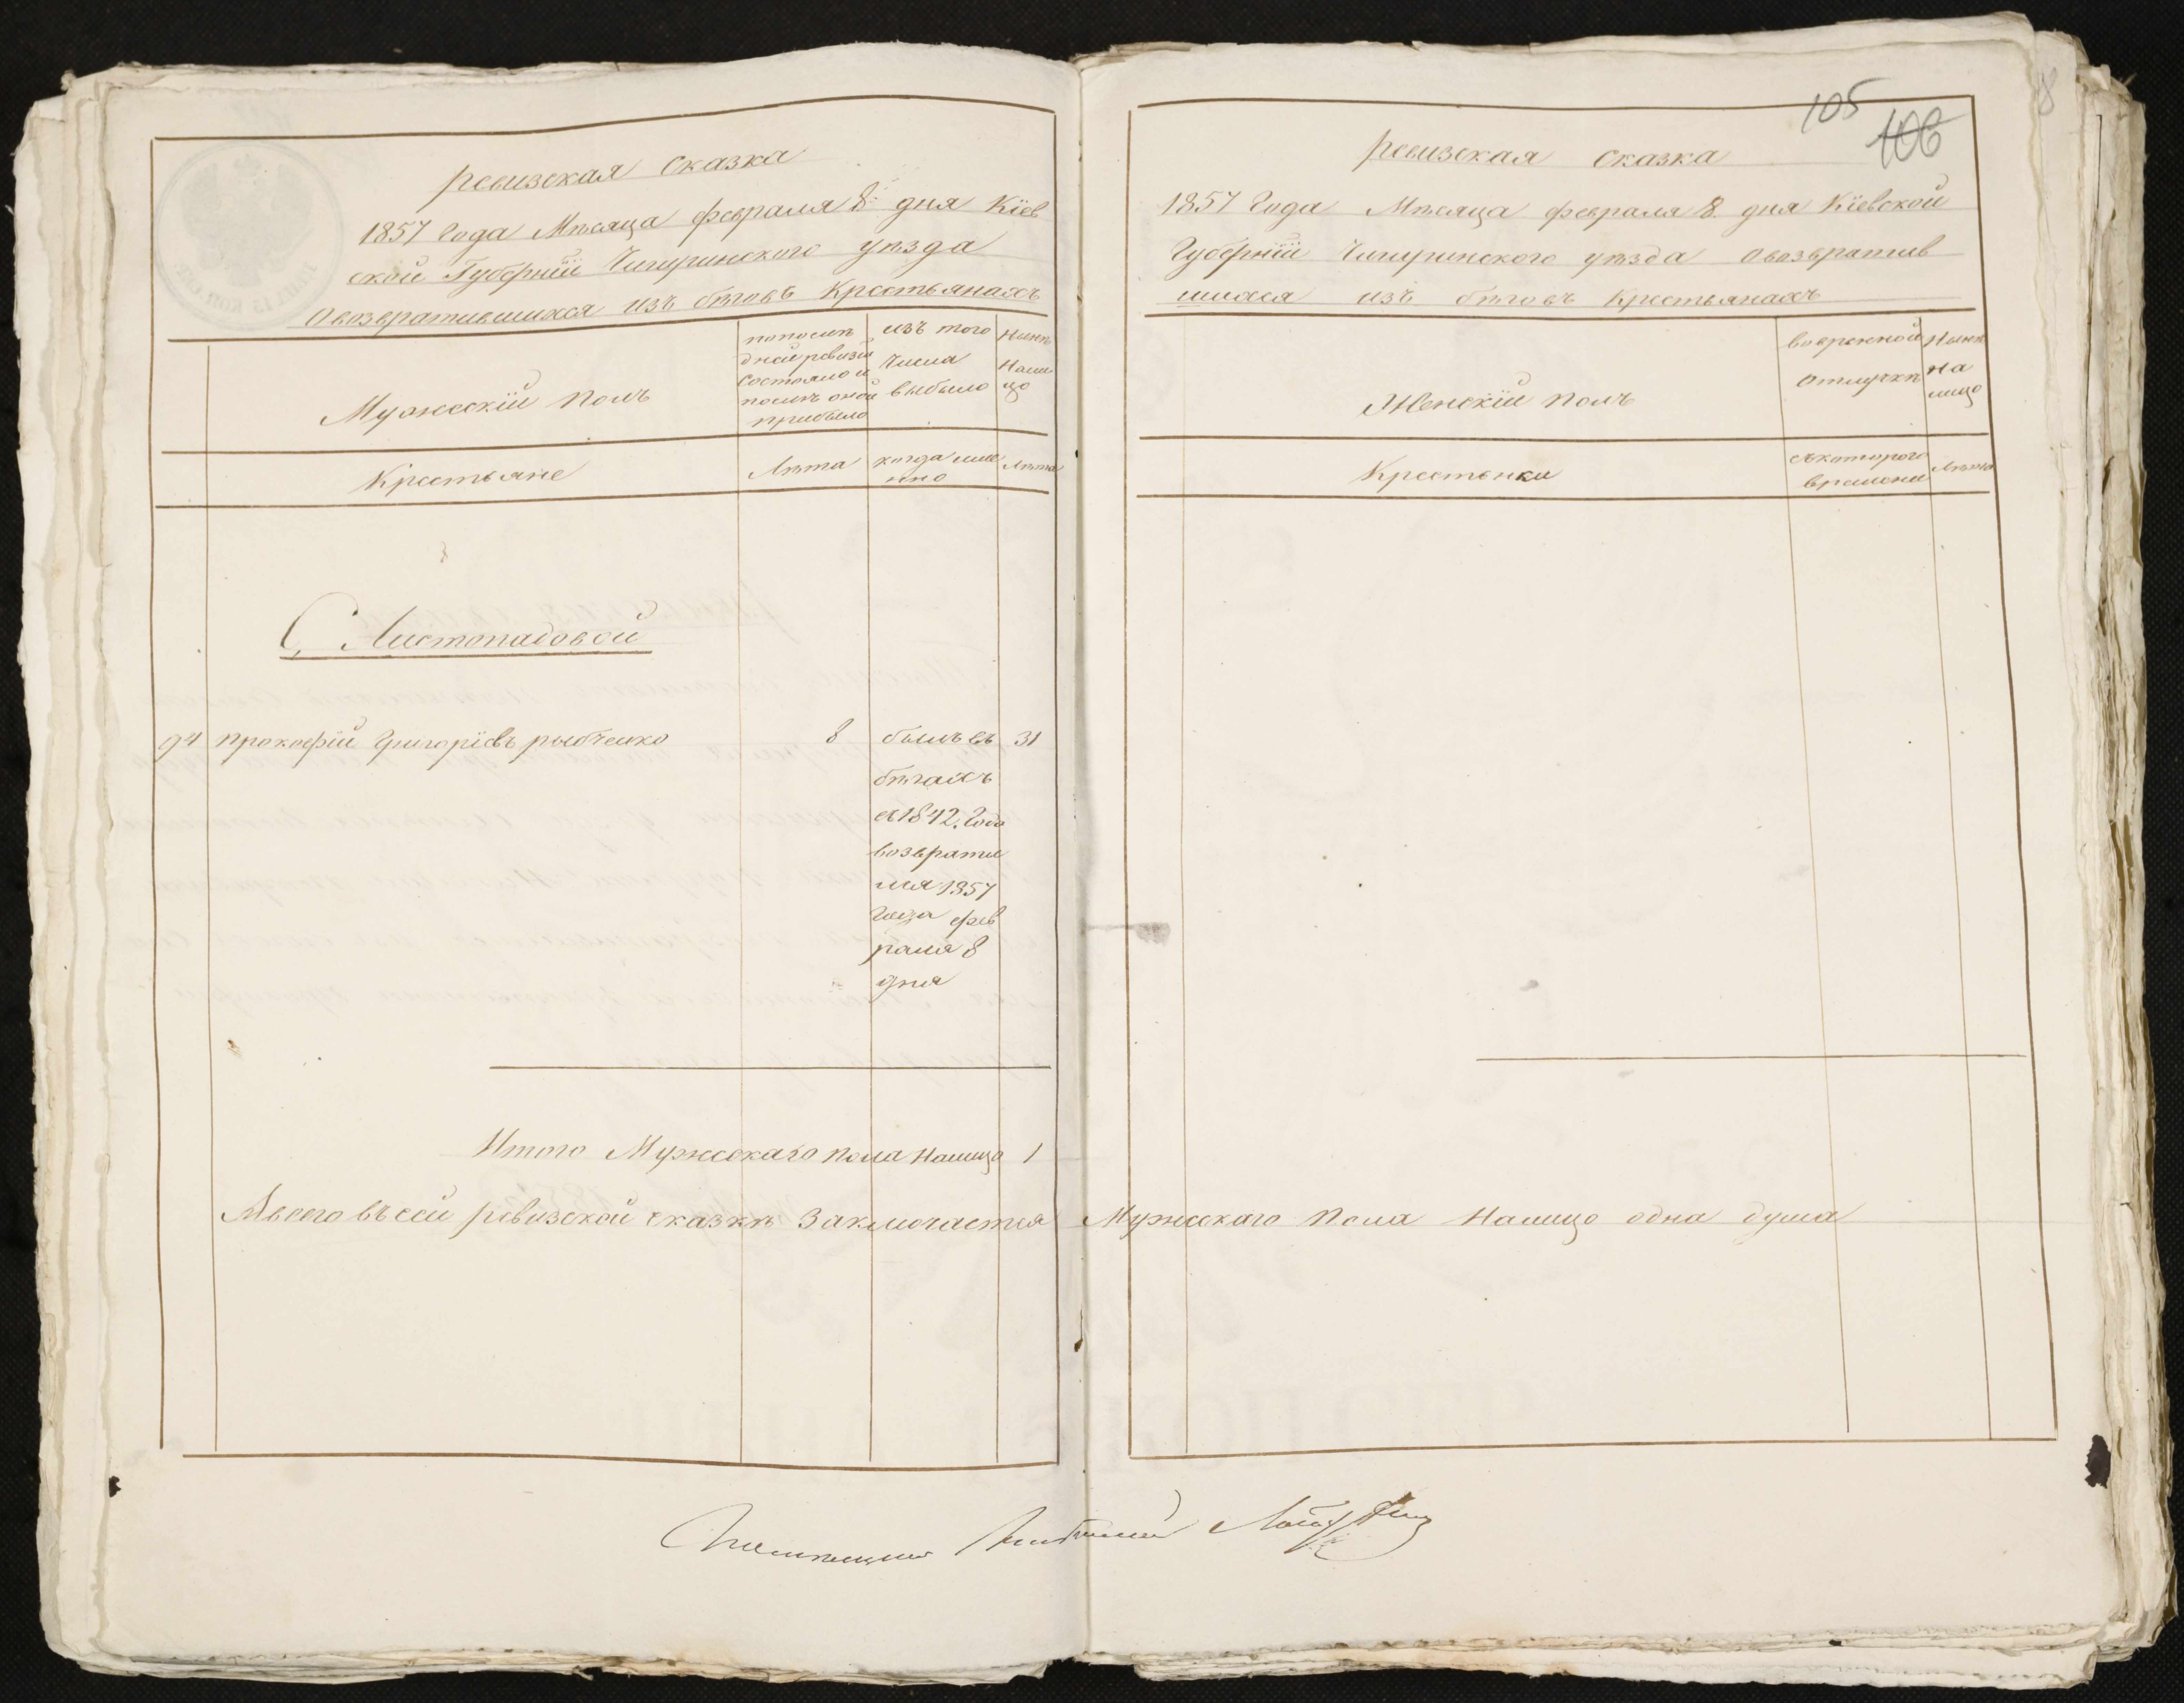 ревизская сказка
1857 года Мѣсяца февраля 8 дня Кіев
ской Губерніи Чигиринского уѣзда
Овозвратившихся изъ бѣговъ Крестьянахъ
Мужескій полъ
попослѣ
дней ревизіи
состояло и
послѣ оной
прибыло
изъ того
числа
выбыло
Нынѣ
Нали
цо
Крестьяне
Лѣта
когда име
нно
Лѣта
С. Листопадовой
94 прокофій Григоріевъ рыбченко 8 былъ въ 31
бѣгахъ
съ 1842. Года
возврати
лся 1857
Года фев
раля 8
дня
Итого Мужескаго пола налицо 1
Авсего въ сей ревизской сказкѣ заключается
105
106
ревизская сказка
1857 Года Мѣсяца февраля 8 дня Кіевской
Губерніи Чигиринского уѣзда Овозвратив
шихся изъ бѣговъ Крестьянахъ
Женскій полъ
вовременной
отлучкѣ
Нынѣ
на
лицо
Крестьнки
съкоторого
времени
Лѣта
Мужескаго пола Налицо одна душа
8